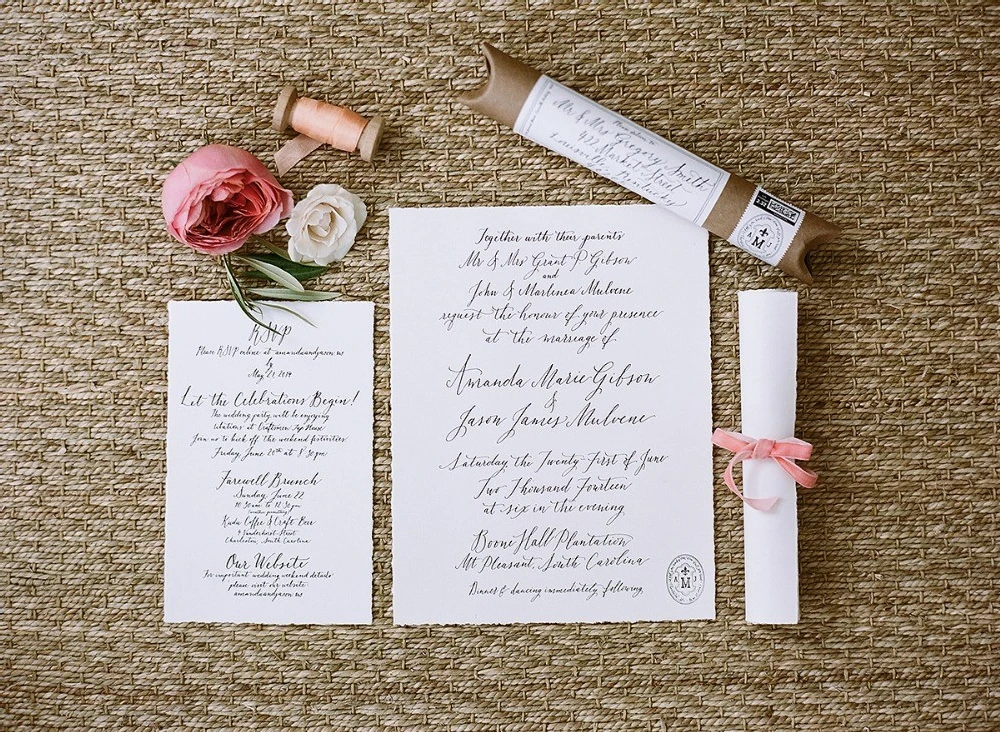 Mr & Mrs Gregory Smith
922 Market Street
Louisville, Kentucky
A M J
RSVP
Please RSVP online at amandaandjason.us
by
May 21, 2014
Let the Celebrations Begin!
The wedding party will be enjoying
libations at Craftsmen Tap House
Join us to kick off the weekend festivities
Friday, June 20th at 8:30pm
Farewell Brunch
Sunday, June 22
10:30am to 12:30pm
Kudu Coffee & Craft Beer
4 Vanderhorst Street
Charleston, South Carolina
Our Website
For important wedding weekend details
please visit our website
amandaandjason.us
Together with their parents
Mr & Mrs Grant P Gibson
and
John & Marlenea Mulvene
request the honour of your presence
at the marriage of
Amanda Marie Gibson
&
Jason James Mulvene
Saturday, the Twenty First of June
Two Thousand Fourteen
at six in the evening
Boone Hall Plantation
Mt Pleasant, South Carolina
Dinner & dancing immediately following
A M J